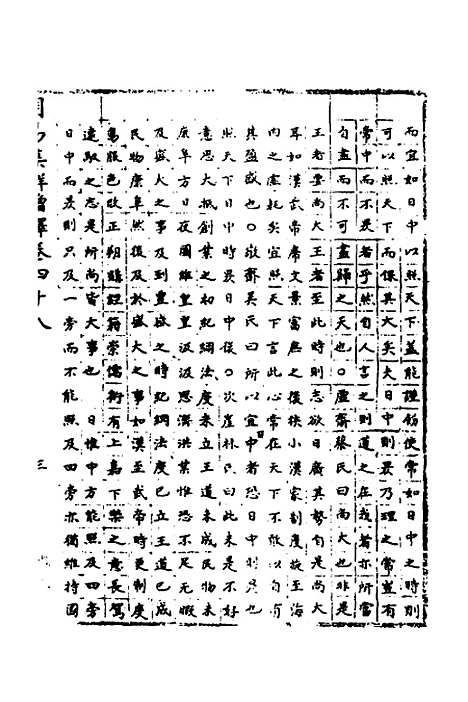 而宜如日中以照天下蓋能謹飭使常如日中之時則
可以照天下而保其大矣夫日中則昃乃理之常豈有
常中而不昃者乎然自人言之則道之在我者亦所當
自盡而不可盡歸之天也○虛齋蔡氏曰尚大也非是
王者要尚大王者至此時則志欲日廣其勢自是尚大
耳如漢武帝席文景富庶之後狹小漢家制度故至海
內之虛耗矣宜照天下言此心常在天下不敢以自有
其盈盛也○敬齋吳氏曰所以宜中者恐日中則昃也
照天下日中時昃日中後○次崖林氏曰此未是不好
意思大抵創業之初紀綱法度未立王道未成民物未
康阜方日夜圖維皇皇汲汲思濟洪業惟恐不足无暇
及盛大之事及到豐盛之時紀綱法度已立王道已成
民物康阜然後及於盛大之事如漢至武帝時更制度
易服色改正朔購經籍崇儒術有上嘉下樂之意長駕
遠馭之志是所尚皆大事也 日惟中方能照及四旁
日中而昃則只及一旁而不能照及四旁亦獨維持國
周易集解增釋卷四十八
三